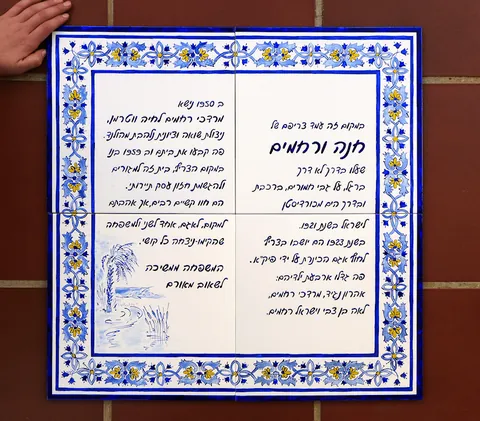 במקום זה עמד צריפם של
חנה ורחמים
שעלו בדרך לא דרך
ברגל, על גבי חמורים, ברכבת
ובדרך הים מכורדיסטן
לישראל בשנת 1921.
בשנת 1923 הם ישבו בצריף
לחוף אגם הכינרת על ידי פיק"א.
פה גדלו ארבעת ילדיהם:
אהרון נגיד, מרדכי רחמים,
לאה בן צבי וישראל רחמים.
ב 1950 נישא
מרדכי רחמים לחיה ווטרמן,
ניצולת שואה וציונית נלהבת מהולנד.
פה קבעו את ביתם וב 1959 בנו
במקום הצריף, בית זה למגורים
ולהגשמת חזון עסק תיירותי.
הם חוו קשיים רבים, אך אהבתם
למקום, לאגם, אחד לשני ולמשפחה
שהקימו-ניצחה כל קושי.
המשפחה ממשיכה
לשאוב מאורם